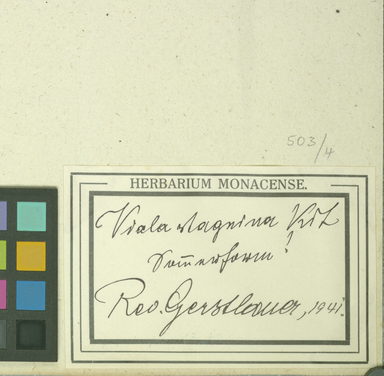 503/4
HERBARIUM MONACENSE.
Viola stagnina Kit
Som̅erform!
Rev. Gerstlauer, 1941.